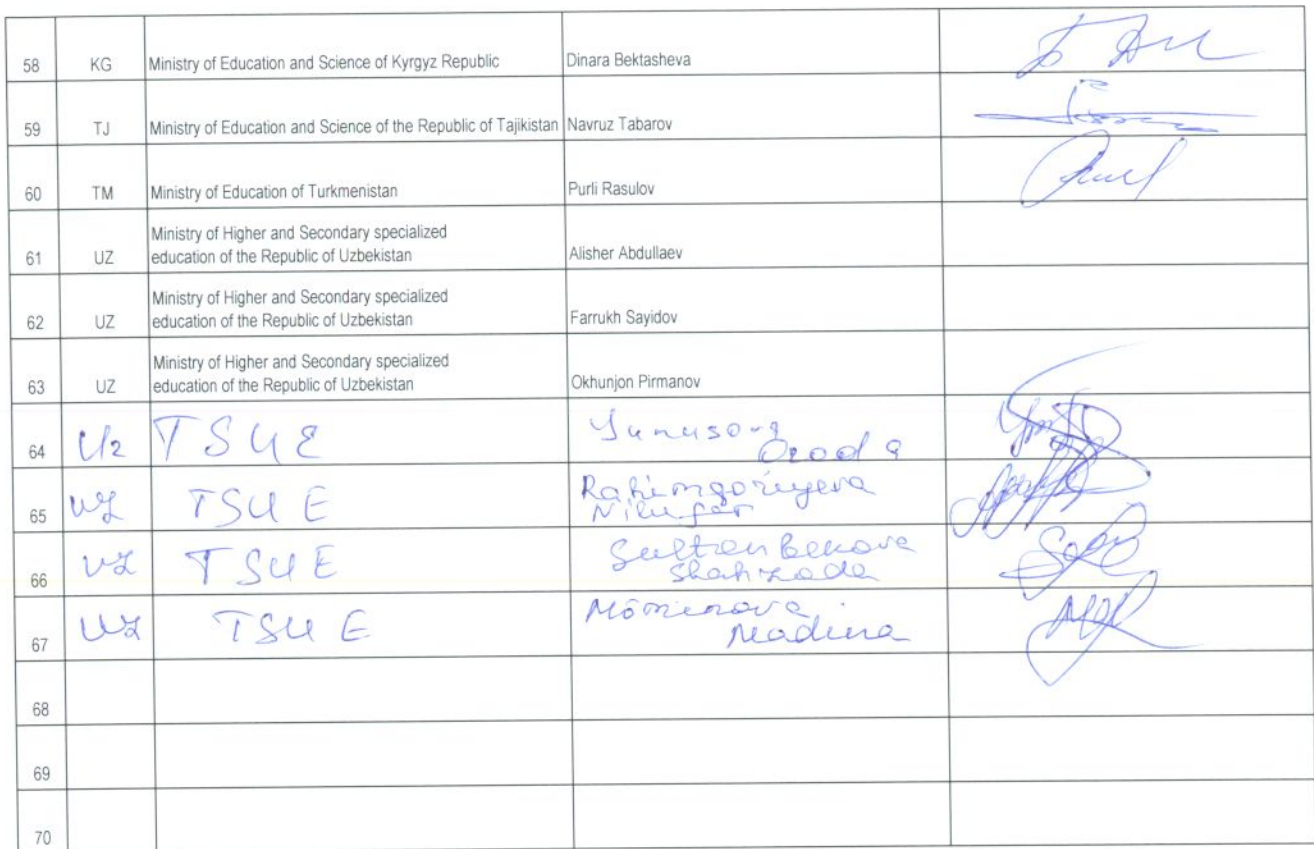 58 KG Ministry of Education and Science of Kyrgyz Republic Dinara Bektasheva
59 TJ Ministry of Education and Science of the Republic of Tajikistan Navruz Tabarov
60 TM Ministry of Education of Turkmenistan Purli Rasulov
Ministry of Higher and Secondary specialized
61 UZ education of the Republic of Uzbekistan Alisher Abdullaev
Ministry of Higher and Secondary specialized
62 UZ education of the Republic of Uzbekistan Farrukh Sayidov
Ministry of Higher and Secondary specialized
63 UZ education of the Republic of Uzbekistan Okhunjon Pirmanov
64 Uz TSUE Yunusova
Ozoda
65 UZ TSUE
Nilufar
66 UZ TSUE Sultanbekova
Shahzoda
67 UZ TSUE Mominova
Madina
68
69
70